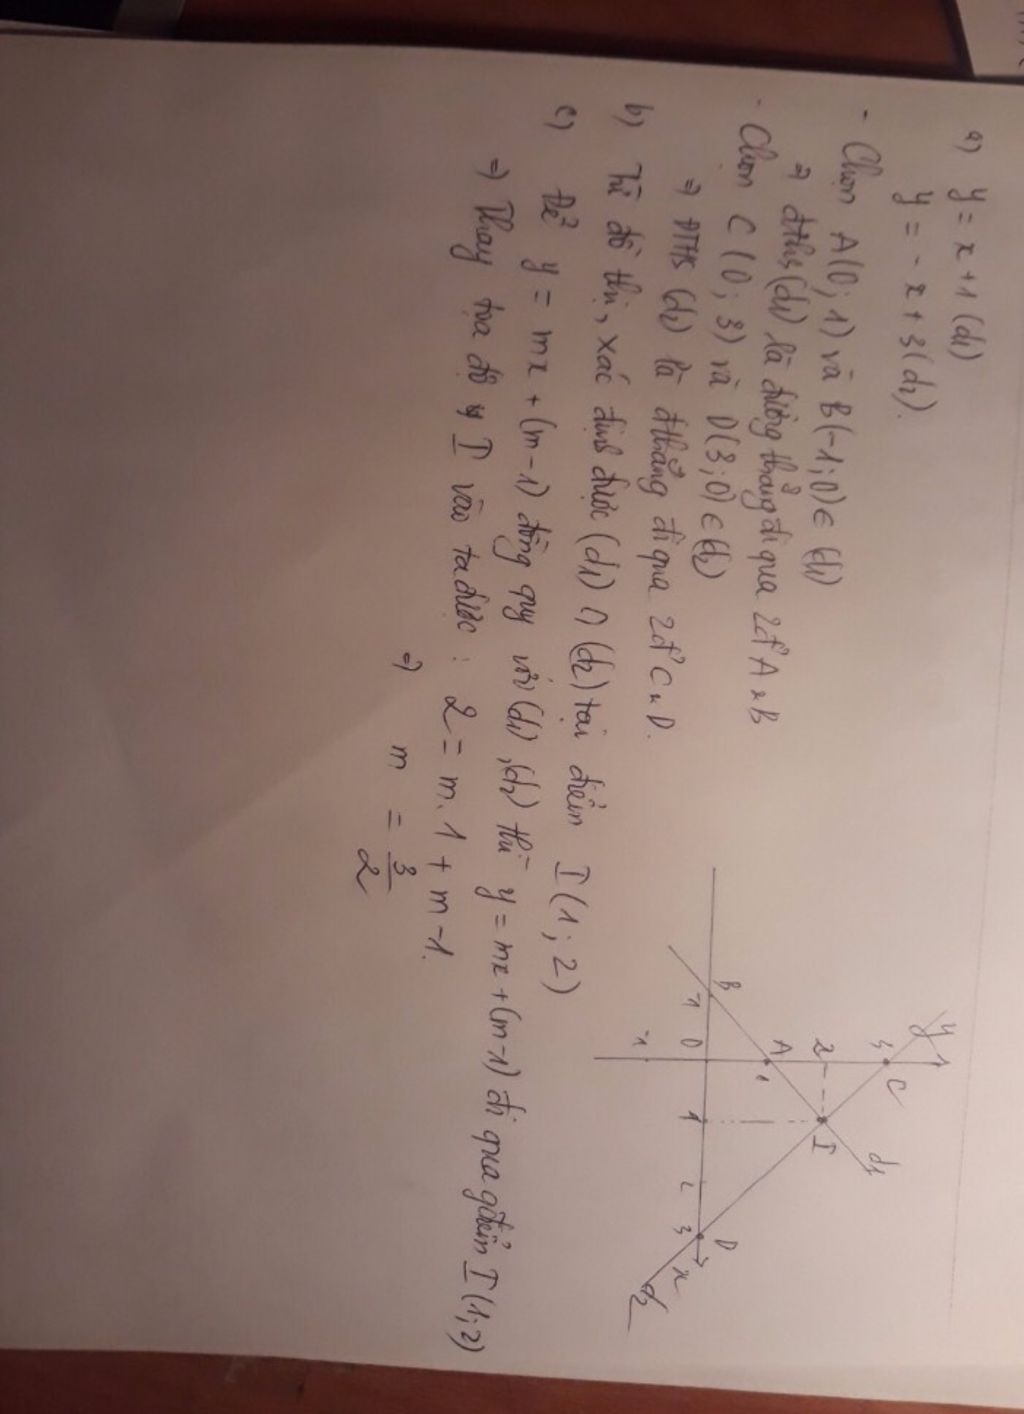 a) y = x + 1 (d1)
y = - x + 3 (d2).
- Chọn A(0; 1) và B(-1; 0) ∈ (d1)
⇒ đths (d1) là đường thẳng đi qua 2đ' A & B
- Chọn C (0; 3) và D(3; 0) ∈ (d2)
⇒ ĐTHS (d2) là đthẳng đi qua 2đ' C & D.
b) Từ đồ thị, xác định được (d1) ∩ (d2) tại điểm I (1; 2)
c) Để y = mx + (m-1) đồng quy với (d1), (d2) thì y = mx + (m-1) đi qua điểm I (1; 2)
⇒ Thay tọa độ I vào ta được : 2 = m. 1 + m - 1.
⇒ m = 3/2
y
3 C
d1
2 I
A 1
B D
-1 0 1 2 3 x
-1
d2